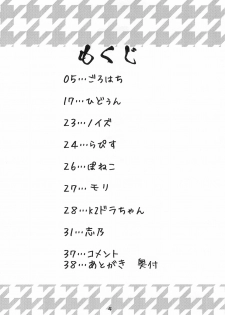 もくじ
05…ごろはち
17…ひどぅん
23…ノイズ
24…らぴす
26…ぱねこ
27…モリ
28…K2ドラちゃん
31…志乃
37…コメント
38…あとがき 奥付